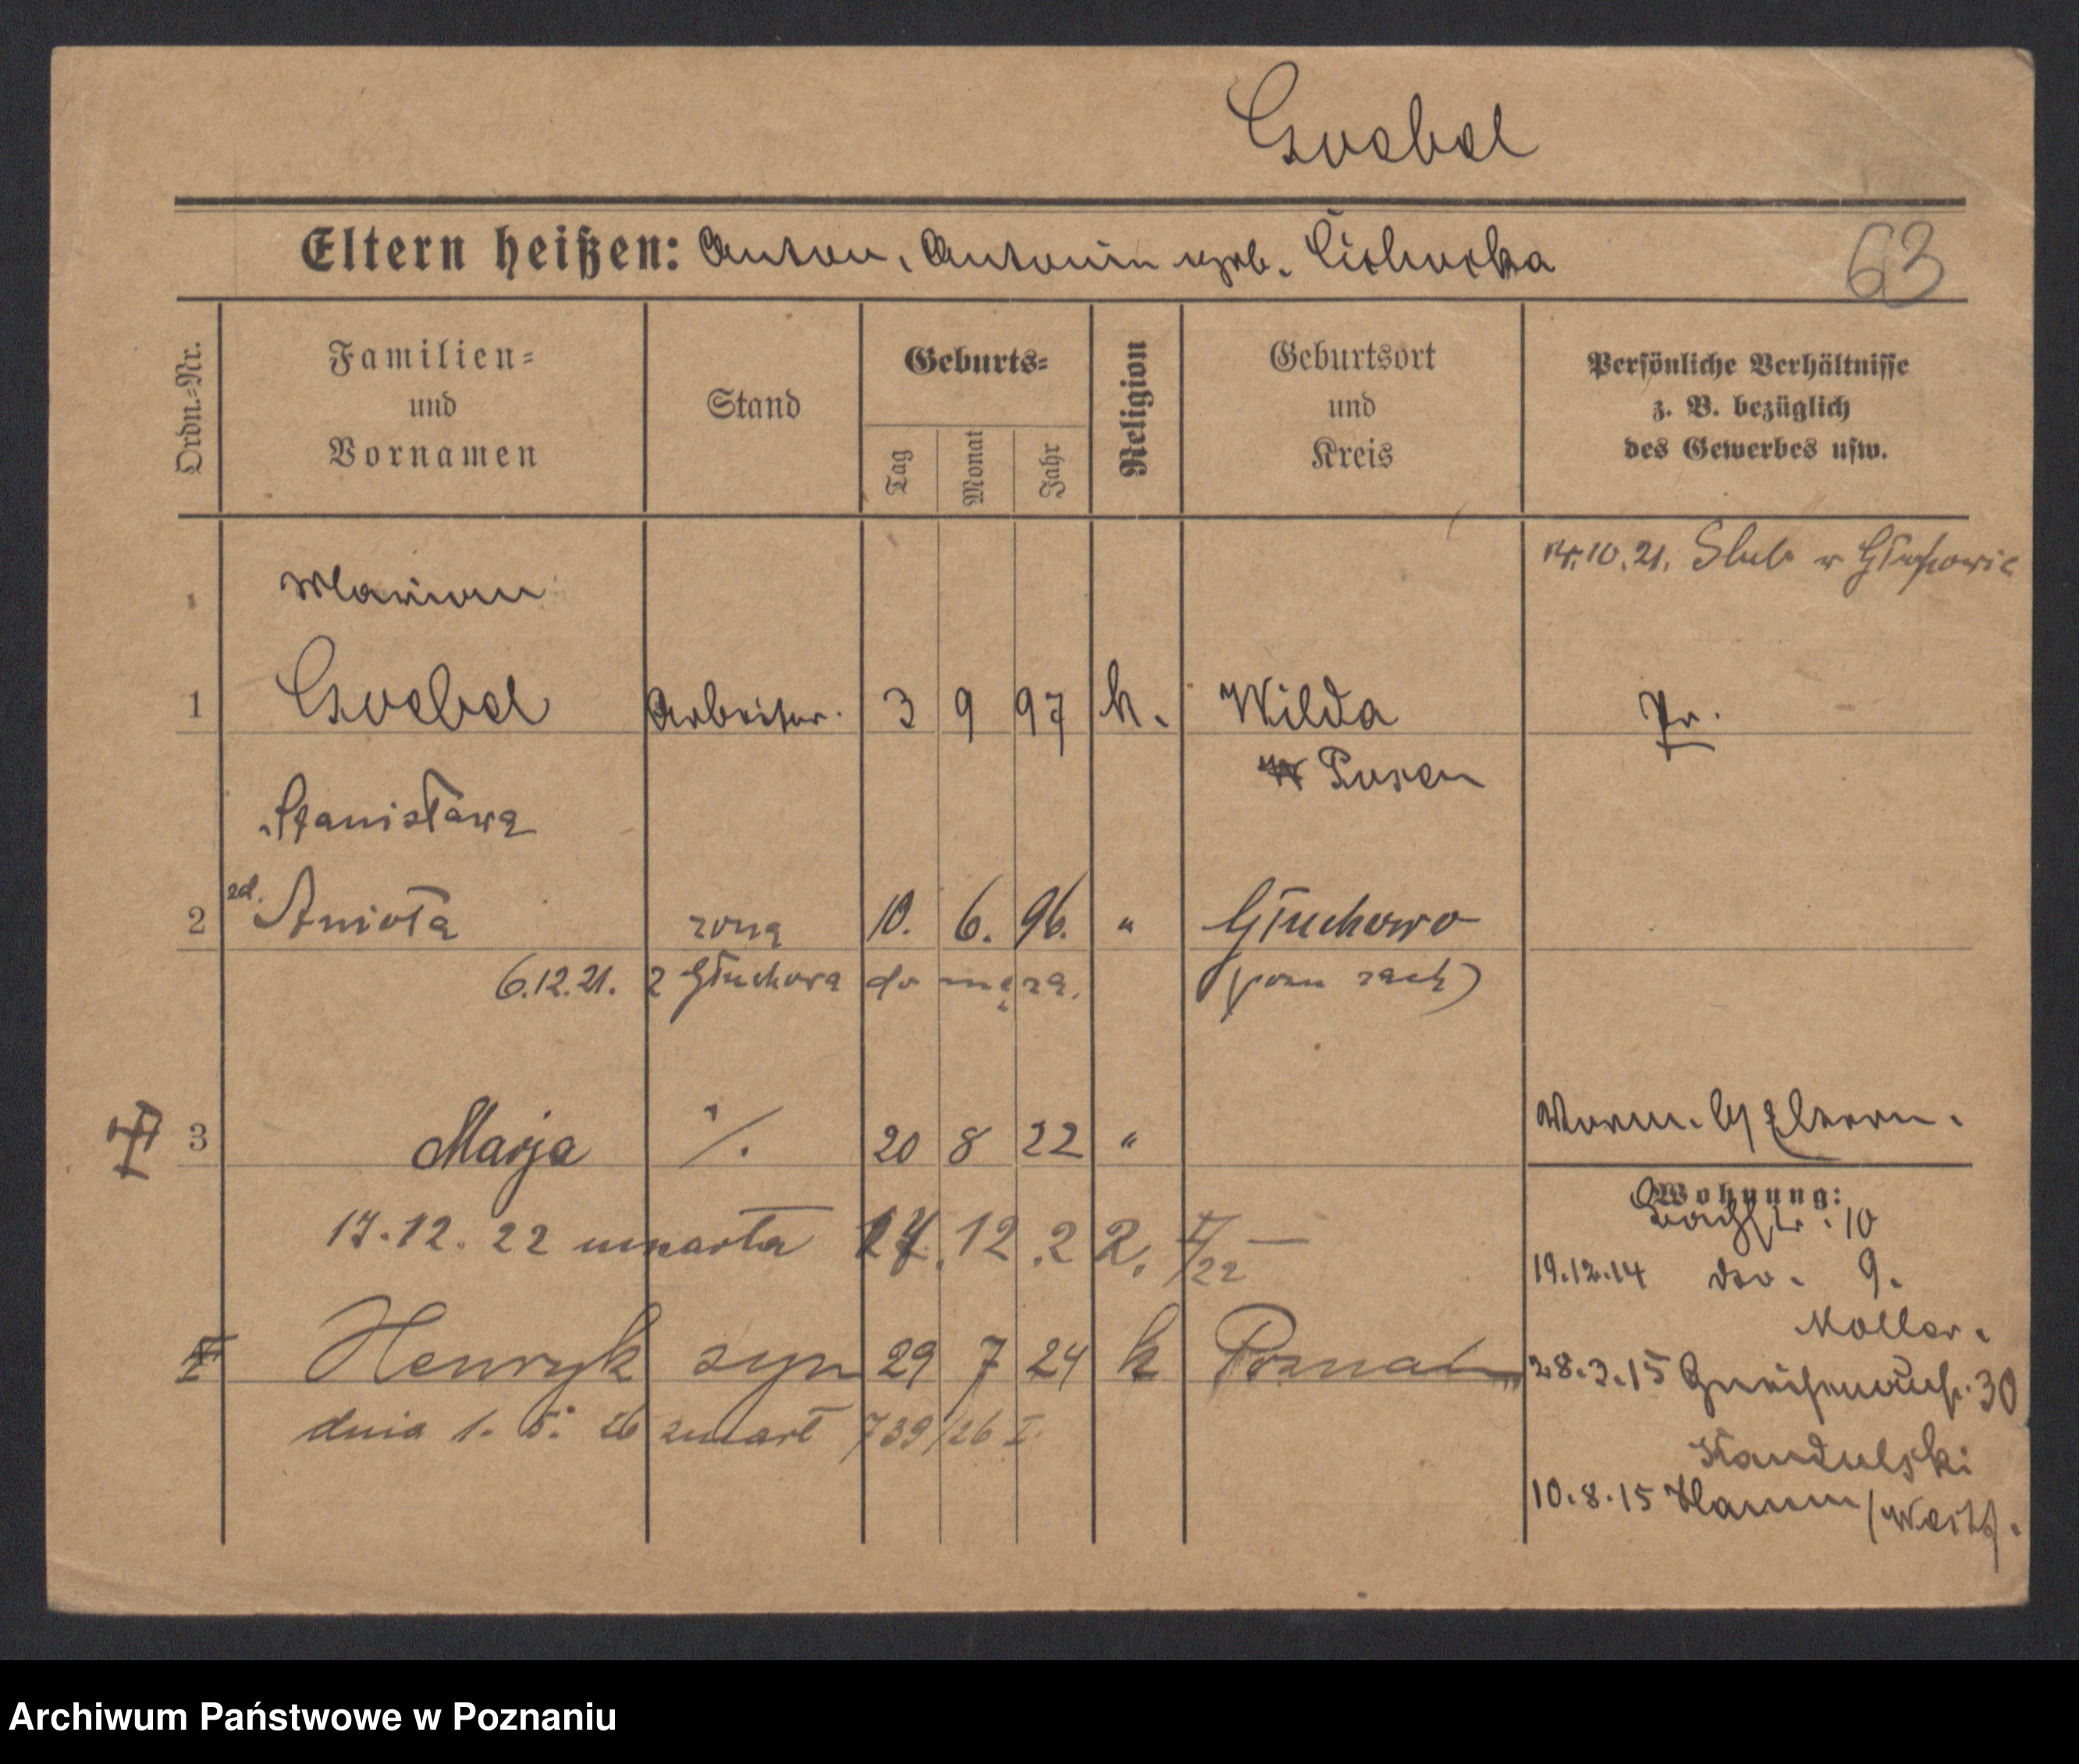 Goebel
Eltern heißen: Anton, Antonin geb. Cichocka
63
Ordn.-Nr.
Familien-
und
Vornamen
Stand
Geburts-
Tag
Monat
Jahr
Religion
Geburtsort
und
Kreis
Persönliche Verhältnisse
z. B. bezüglich
des Gewerbes usw.
10.21. Slub w
Marian
1 Goebel Arbeiter. 3 9 97 k. Wilda Pr.
Posen
Stanisława
2 zd. Anioła żona 10. 6. 96. " Głuchowo
6.12.21. z Głuchowa do męża. (pozn zach)
3 Marja ./. 20 8 22 " Eltern.
Wohnung:
17.12.22 umarła 17.12.22. I/22 —
Bachstr. 10
19.12.14 do. 9.
Moller.
Henryk syn 29 7 24 k Poznań
28.3.15 Gneisenaustr. 30
dnia 1. 5. 26 zmarł 739/26 I.
Kandulski
10.8.15 Hamm/Westf.
Archiwum Państwowe w Poznaniu